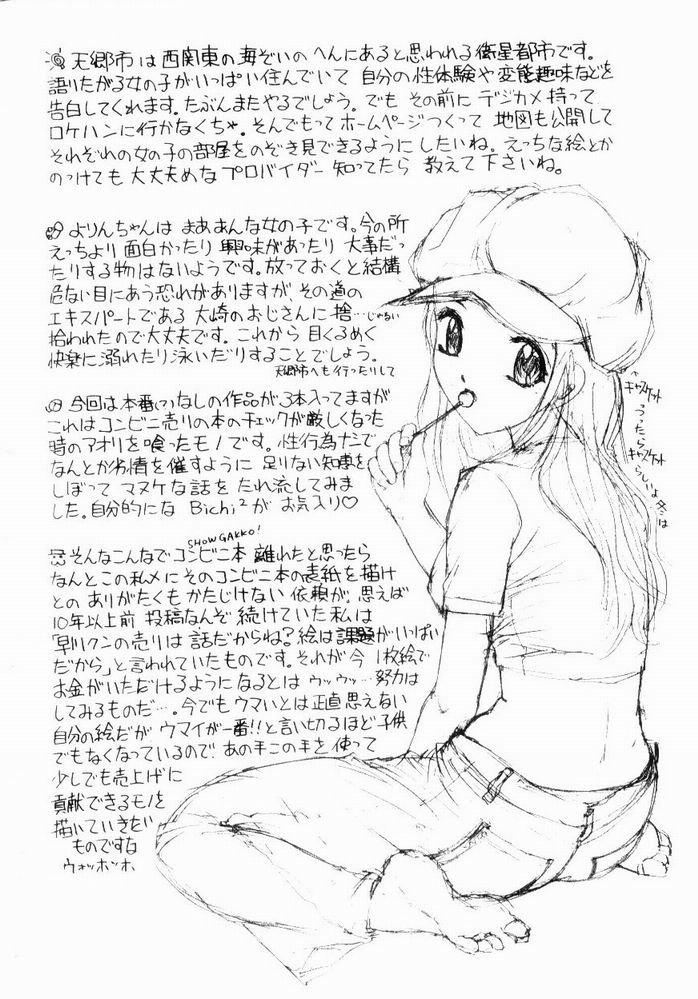 天郷市は西関東の海ぞいのへんにあると思われる衛星都市です。
語りたがる女の子がいっぱい住んでいて 自分の性体験や変態趣味などを
告白してくれます。たぶんまたやるでしょう。でも その前に デジカメ持って
ロケハンに行かなくちゃ。そんでもってホームページつくって 地図も公開して
それぞれの女の子の部屋をのぞき見できるようにしたいね。えっちな絵とか
のっけても大丈夫めなプロバイダー 知ってたら 教えて下さいね。
よりんちゃんは まああんな女の子です。今の所
えっちより 面白かったり 興味があったり 大事だっ
たりする物はないようです。放っておくと結構
危ない目にあう恐れがありますが、その道の
エキスパートである 大崎のおじさんに 捨…じゃない
拾われたので大丈夫です。これから 目くるめく
快楽に溺れたり泳いだりすることでしょう。
天郷市へも行ったりして
今回は本番(?)なしの作品が3本入ってますが
これはコンビニ売りの本のチェックが厳しくなった
時のアオリを喰ったモノです。性行為なしで
なんとか劣情を催すように 足りない知恵を
しぼって マヌケな話を たれ流してみま
した。自分的にな Bichi² が お気入り♡
SHOWGAKKO!
そんなこんなでコンビニ本 離れたと思ったら
なんとこの私メにそのコンビニ本の表紙を描け
との ありがたくもかたじけない 依頼が。思えば
10年以上前 投稿なんぞ 続けていた 私は
「早リクンの売りは 話だからね?絵は課題がいっぱい
だから」と言われていたものです。それが今 1枚絵で
お金がいただけるようになるとは ウッウッ…努力は
してみるものだ…。今でもウマいとは正直思えない
自分の絵だが ウマイが一番!!と言い切るほど子供
でもなくなっているので あの手この手を使って
少しでも売上げに
貢献できるモノを
描いていきたい
ものですな
ウォッホッホ
キャスケット
っつったら
キャスケット
らしいよ冬は